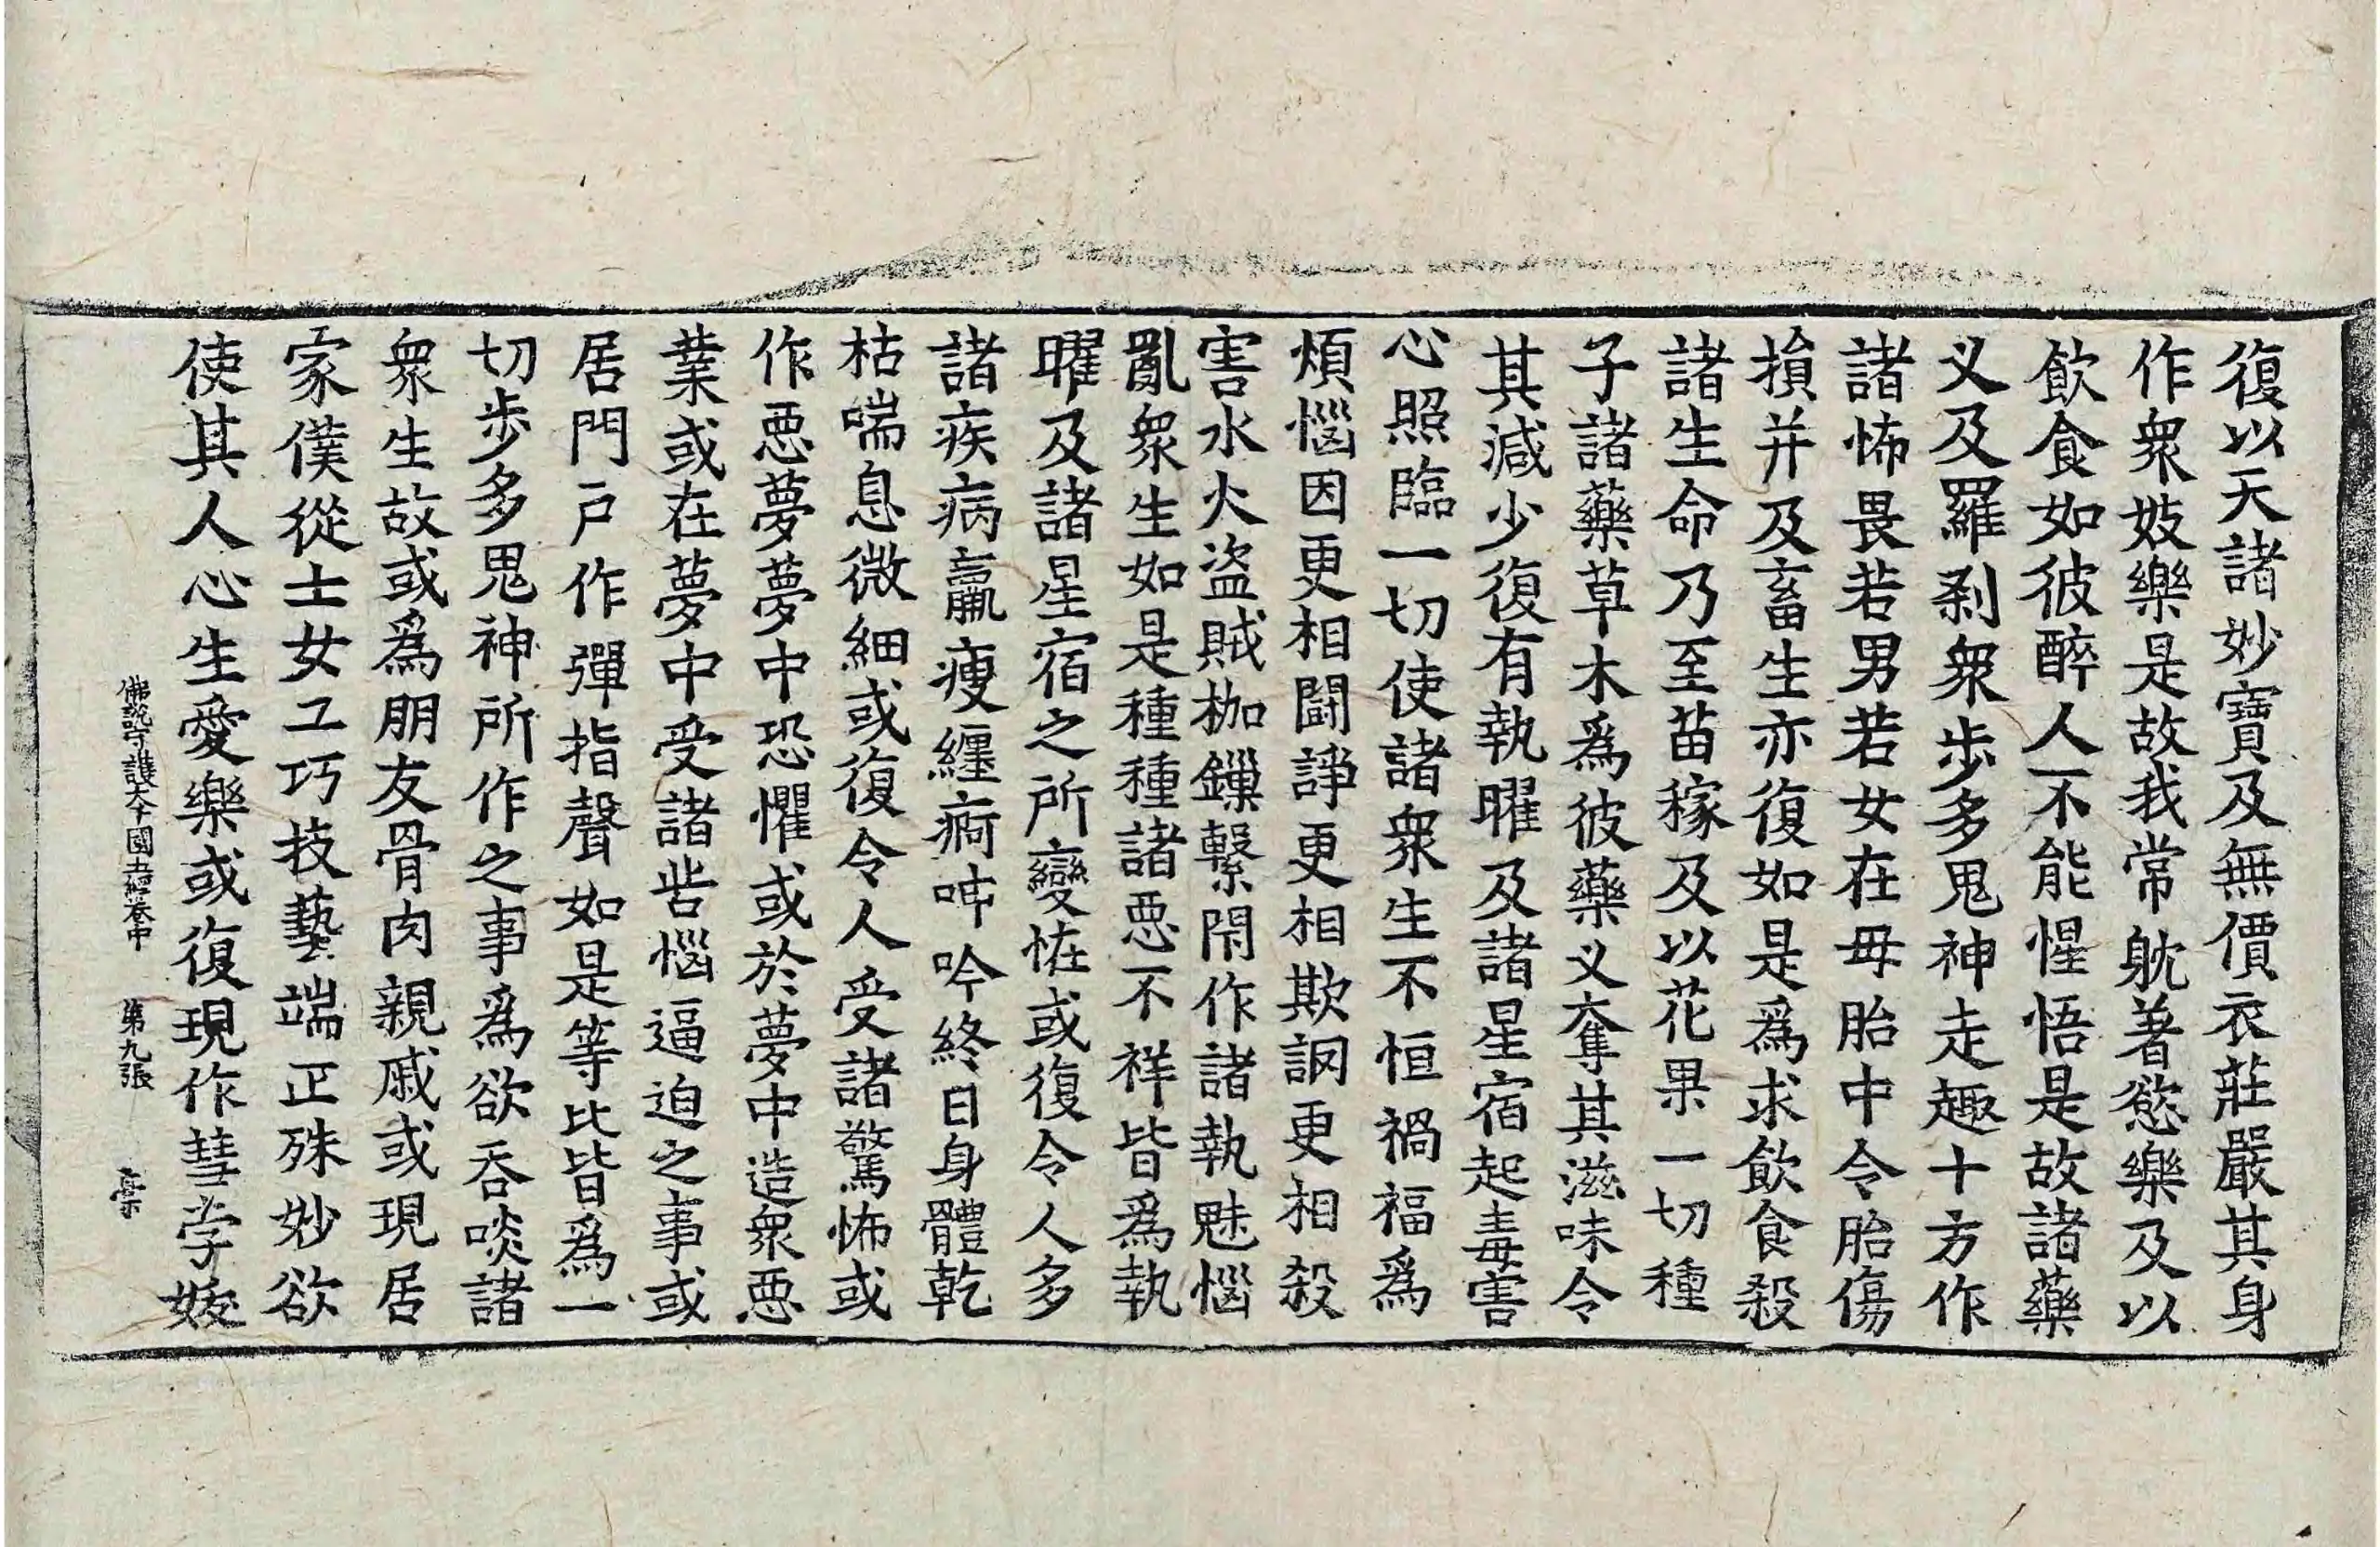 復以天諸妙寶及無價衣莊嚴其身
作衆妓樂是故我常躭著慾樂及以
飲食如彼醉人不能惺悟是故諸藥
义及羅剎衆步多鬼神走趣十方作
諸怖畏若男若女在母胎中令胎傷
損并及畜生亦復如是爲求飲食殺
諸生命乃至苗稼及以花果一切種
子諸藥草木爲彼藥义奪其滋味令
其減少復有執曜及諸星宿起毒害
心照臨一切使諸衆生不恒禍福爲
煩惱因更相鬪諍更相欺誷更相殺
害水火盜賊枷鏁繫閇作諸執魅惱
亂衆生如是種種諸惡不祥皆爲執
曜及諸星宿之所變恠或復令人多
諸疾病羸瘦纏痾呻吟終日身體乾
枯喘息微細或復令人受諸驚怖或
作惡夢夢中恐懼或於夢中造衆惡
業或在夢中受諸呰惱逼迫之事或
居門戶作彈指聲如是等比皆爲一
切步多鬼神所作之事爲欲吞啖諸
衆生故或爲朋友骨肉親戚或現居
家僕從士女工巧技藝端正殊妙欲
使其人心生愛樂或復現作彗孛妭
佛說守護大千國土經卷中 第九張